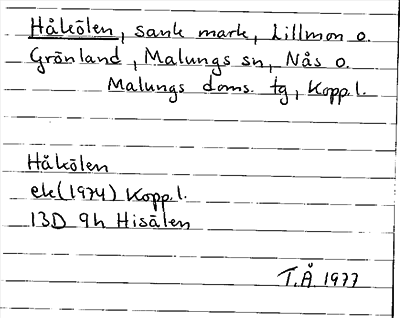 Håkölen, sank mark, Lillmon o.
Grönland, Malungs sn, Nås o.
Malungs doms. tg, Kopp.l.
Håkölen
ek(1974) Kopp.l.
13D 9h Hisälen
T.Å 1977